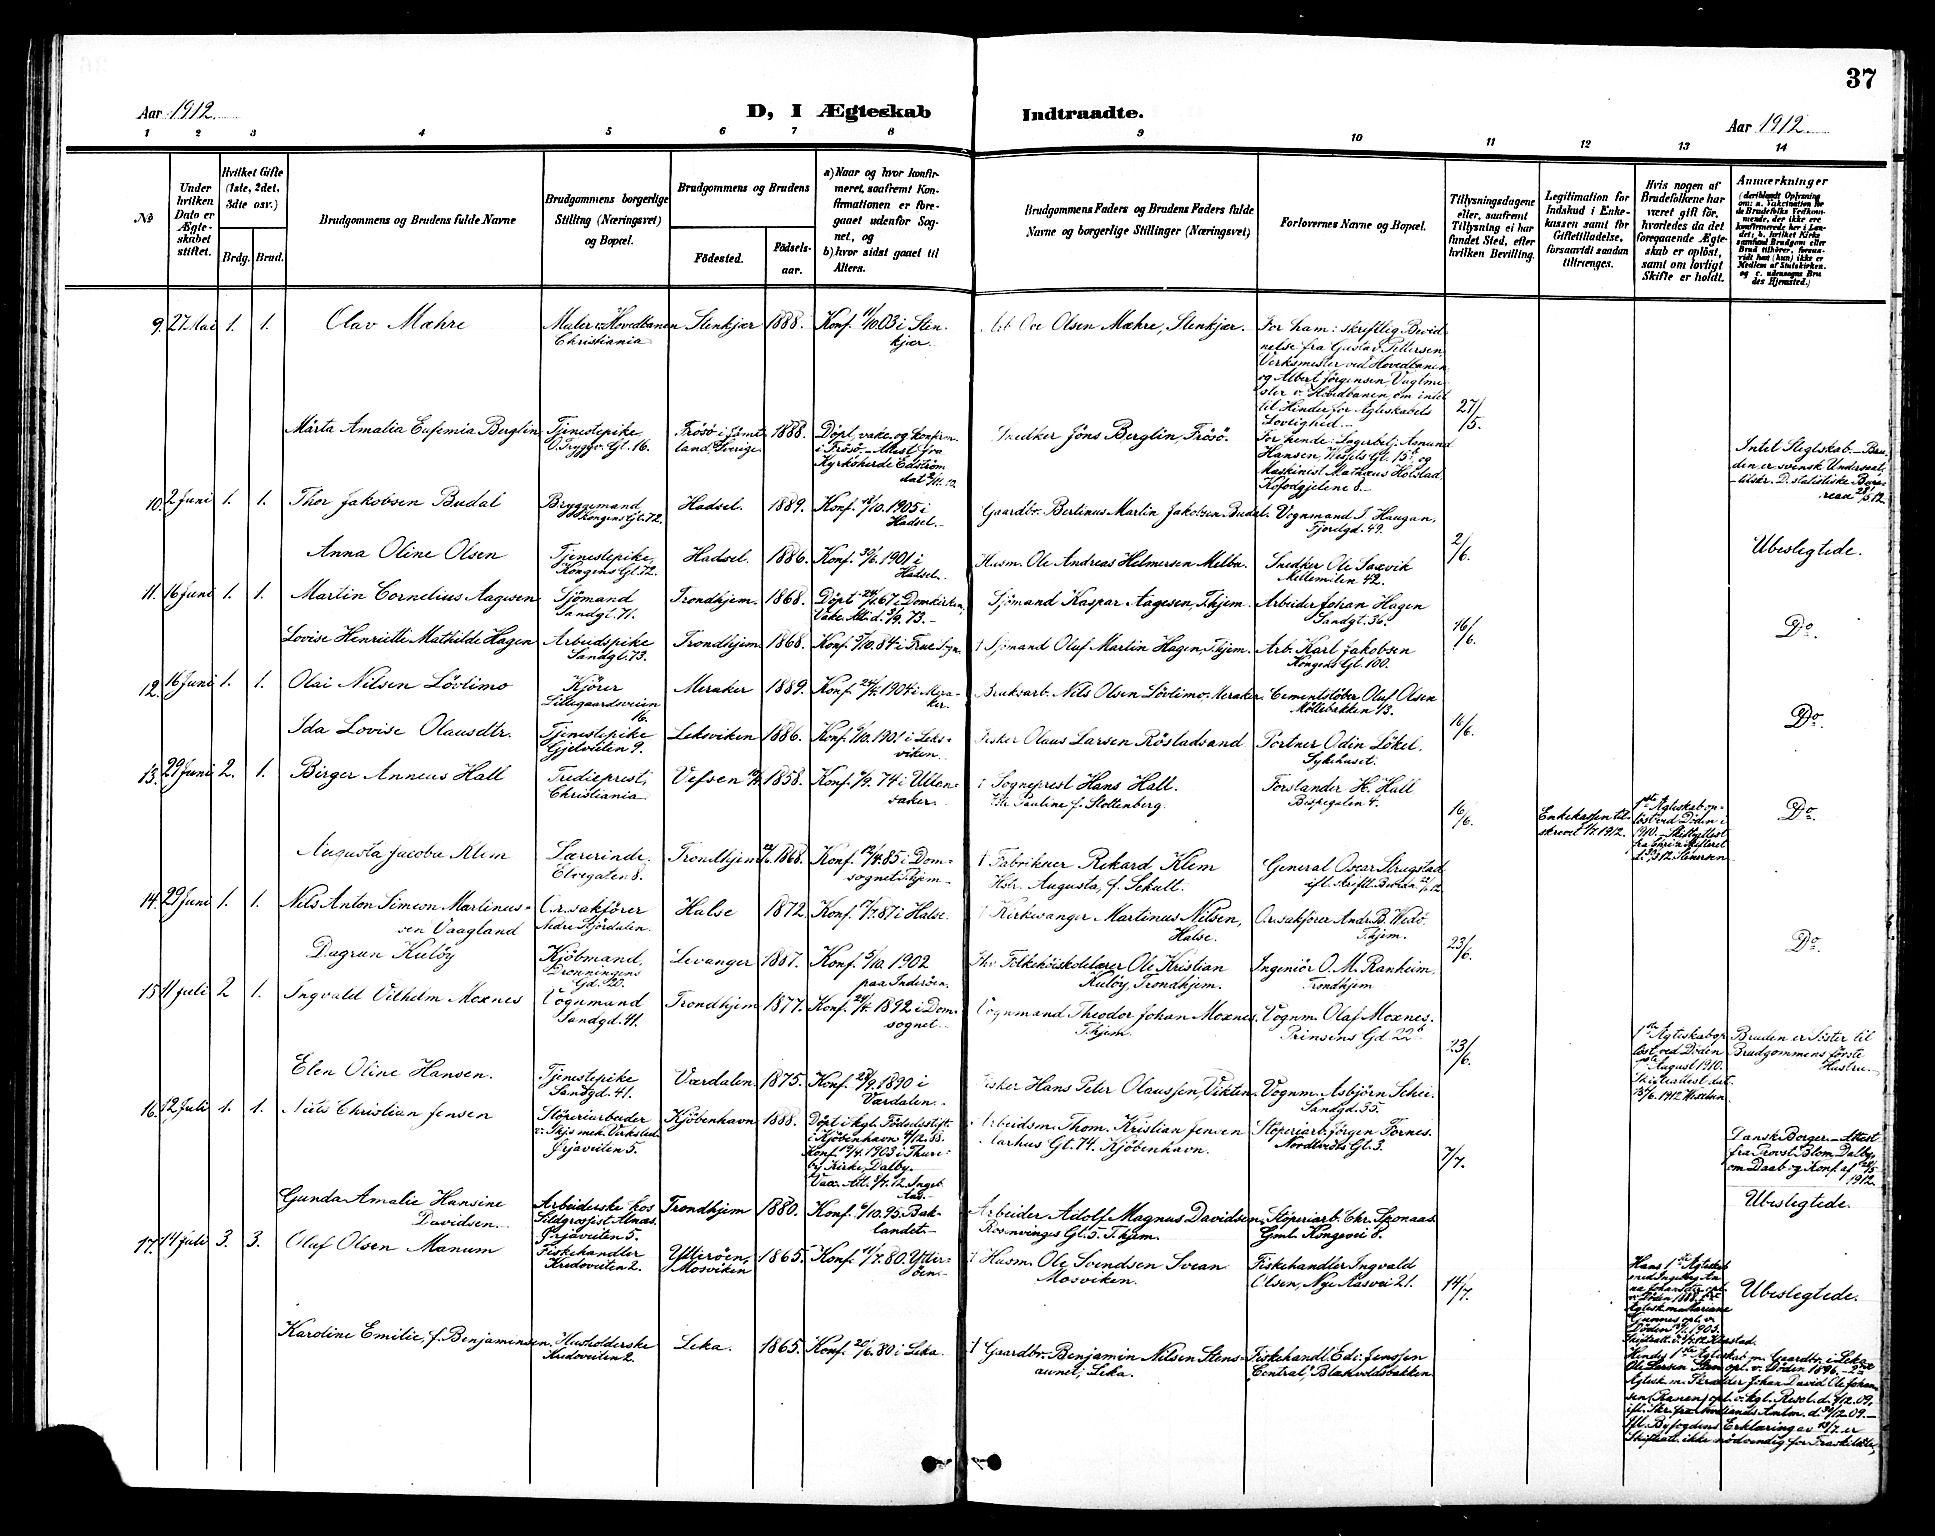 37
Aar 1912.
D, I Ægteskab Indtraadte.
Aar 1912.
1 2 3 4 5 6 7 8 9 10 11 12 13 14
No
Under hvilken Dato er Ægteskabet stiftet.
Hvilket Gifte (1ste, 2det, 3die osv.)
Brdg. Brud.
Brudgommens og Brudens fulde Navne
Brudgommens borgerlige Stilling (Næringsvei) og Bopæl.
Brudgommens og Brudens
Fødested. Fødselsaar.
a) Naar og hvor konfirmeret, saafremt Konfirmationen er foregaaet udenfor Sognet, og
b) hvor sidst gaaet til Alters.
Brudgommens Faders og Brudens Faders fulde Navne og borgerlige Stillinger (Næringsvei)
Forlovernes Navne og Bopæl.
Tillysningsdagene eller, saafremt Tillysning ei har fundet Sted, efter hvilken Bevilling.
Legitimation for Indskud i Enkekassen samt for Giftetilladelse, forsaavidt saadan tiltrænges.
Hvis nogen af Brudefolkene har været gift før, hvorledes da det foregaaende Ægteskab er opløst, samt om lovligt Skifte er holdt.
Anmærkninger
(deriblandt Oplysning om: a. Vakcination for de Brudefolks Vedkommende, der ikke ere konfirmerede her i Landet; b. hvilket Kirkesamfund Brudgom eller Brud tilhører, forsaavidt han (hun) ikke er Medlem af Statskirken, og c. udensogns Brudes Hjemsted.)
9. 27 Mai 1. 1. Olav Mæhre
Maler v. Hovedbanen Christiania
Stenkjær 1888. Konf. 11/10.03 i Stenkjær.
Arb. Ove Olsen Mæhre, Stenkjær.
For ham: skriftlig Bevidnelse fra Gustav Pettersen, Verksmester ved Hovedbanen og Albert Jörgensen, Vagtmester v. Hovedbanen, om intet til Hinder for Ægteskabets Lovlighed.
27/5.
Märta Amalia Eufemia Berglin
Tjenestepike, O. Tryggv. Gt. 16.
Frösö i Jämtland, Sverige 1888.
Döpt, vakc. og konfirm. i Frösö. Attest fra Kyrkoherde Edström
Snedker Jöns Berglin, Frösö.
For hende: Ingerbetj. Asmund Hansen, Wesels Gt. 15 b og Maskinist Matheus Hofstad, Kofodgjelene 8.
Intet Slegtskab. Bruden er svensk Undersaat,
10. 2 Juni 1. 1. Thor Jakobsen Budal
Bryggemand Kongens Gt. 72.
Hadsel. 1889. Konf. 18/10.1905 i Hadsel.
Gaardbr. Bertinus Martin Jakobsen Budal.
Vognmand J. Haugan, Fjordgd. 49.
2/6.
Anna Oline Olsen
Tjenestepike, Kongens Gt. 72.
Hadsel. 1886. Konf. 30/6.1901 i Hadsel.
Husm. Ole Andreas Helmersen Melbu.
Snedker Ole Saxvik Mellemilen 42.
Ubeslegtede.
11. 16 Juni 1. 1. Martin Cornelius Aagesen
Sjömand Sandgt. 71.
Trondhjem. 1868. Döpt
Sjömand Kaspar Aagesen, Thjem.
Arbeider Johan Hagen Sandgt. 36.
16/6.
Do.
Lovise Henriette Mathilde Hagen
Arbeidspike Sandgt. 73.
Trondhjem. 1868. Konf. 5/10.84 i Frue Sogn.
† Sjömand Oluf Martin Hagen, Thjem.
Arb. Karl Jakobsen Kongens Gt. 100.
12. 16 Juni 1. 1. Olai Nilsen Lövlimo
Kjörer Lillegaardsveien 16.
Meraker 1889. Konf. 24/7.1904 i Meraker.
Bruksarb. Nils Olsen Lövlimo, Meraker.
Cementstöber Oluf Olsen Möllebakken 13.
16/6.
Do.
Ida Lovise Olausdtr.
Tjenestepike Gjetveiten 9.
Leksviken 1886. Konf. 6/10.1901 i Leksviken.
Fisker Olaus Larsen Röstadsand
Portner Odin Lökel. Sykehuset.
13. 29 Juni 2. 1. Birger Anneus Hall
Trediepresti, Christiania
Vefsen 1858. Konf. 6/9.74 i Ullensaker.
† Sogneprest Hans Hall. Hu. Pauline f. Stoltenberg.
Forstander H. Hall Bispegaten 4.
16/6.
Enkekassen tilskrevet 1/7.1912.
1ste Ægteskab oplöst ved Döden i 1910.
Do.
Augusta Jacoba Klem
Lærerinde. Elvegaten 8.
Trondhjem 1868. Konf. 12/4.85 i Domsognet, Thjem.
† Fabrikner Rikard Klem Hstr. Augusta, f. Schult.
General Oscar Strugstad
14. 29 Juni 1. 1. Nils Anton Simeon Martinussen Vaagland
O.r.sakförer Nedre Stjördalen.
Halse 1872. Konf. 17/7.87 i Halse.
† Kirkesanger Martinus Nilsen, Halse.
O.r.sakförer Andr. B. Wedö Thjem.
23/6.
Do.
Dagrun Kulöy
Kjöbmand, Dronningens Gd. 20.
Levanger 1887. Konf. 5/10.1902 paa Inderöen.
Fhv. Folkehöiskolelærer Ole Kristian Kulöy, Trondhjem.
Ingeniör O. M. Ranheim, Trondhjem
15. 11 Juli 2 1. Ingvald Vilhelm Moxnes
Vognmand Sandgd. 41.
Trondhjem 1877. Konf. 24/4.1892 i Domsognet.
Vognmand Theodor Johan Moxnes. Thjem.
Vognm. Olaf Moxnes. Prinsens Gd. 22 b.
23/6.
1ste Ægteskab oplöst ved Döden August 1910.
Bruden er Söster til Brudgommens förste Hustru.
Elen Oline Hansen.
Tjenestepike Sandgd. 41.
Værdalen 1875. Konf. 28/9.1890 i Værdalen.
Fisker Hans Peter Olaussen, Vikten.
Vognm. Asbjörn Schei. Sandgd. 35.
16. 12 Juli 1. 1. Niels Christian Jensen
Stöperiarbeider v. Thjs mek. Verksted. Örjaveiten 5.
Kjöbenhavn 1888. Döpt i kgl. Födselsstift. i Kjöbenhavn 9/12.88. Konf. 19/4.1903 i Thureby Kirke, Dalby.
Arbeidsm. Thom. Kristian Jensen Aarhus Gt. 74. Kjöbenhavn.
Stöperiarb. Jörgen Fornes. Nordtvedts Gt. 3.
7/7.
Dansk Borger. Attest fra Provst Blom, Dalby, om Daab og Konf. af 1912.
Gunda Amalie Hansine Davidsen.
Arbeiderske hos Sildgrossist Alnæs. Örjaveiten 5.
Trondhjem 1880. Konf. 6/10.95. Baklandet.
Arbeider Adolf Magnus Davidsen, Rosenvinges Gt. 5. Thjem.
Stöperiarb. Chr. Sponaas. Gml. Kongevei 8.
Ubeslegtede.
17. 14 Juli 3. 3. Oluf Olsen Manum
Fiskehandler Kredoveiten 2.
Ytteröen, Mosviken 1865. Konf. 11/7.80. Ytteröen.
† Husm. Ole Svendsen Svean Mosviken.
Fiskehandler Ingvald Olsen, Nye Aasvei 21.
14/7.
Hans 1ste Ægteskab med Ingeborg Anna Johansdtr opl. v. Döden 1888.
Ubeslegtede.
Karoline Emilie, f. Benjaminsen.
Husholderske Kredoveiten 2.
Leka. 1865. Konf. 20/6.80 i Leka.
† Gaardbr. Benjamin Nilsen Stensaunet, Leka.
Fiskehandl. Edv. Jenssen "Central", Blækvoldsbakken.
Hendes 1ste Ægteskab m. Gaardbr. i Leka Ole Larsen Sten opl. v. Döden 1896.
Ægtesk. m. Skrædder Johan David Ole Johansen (Ranen) opl. v. kgl. Resol. d. 9/12.09,
ifl. Skr. fra Nordlands Amtm. d. 30/12.09.
Ifl. Byfogdens Erklæring av 13/7. er Skifteatt. ikke nödvendig for Fraskildte.